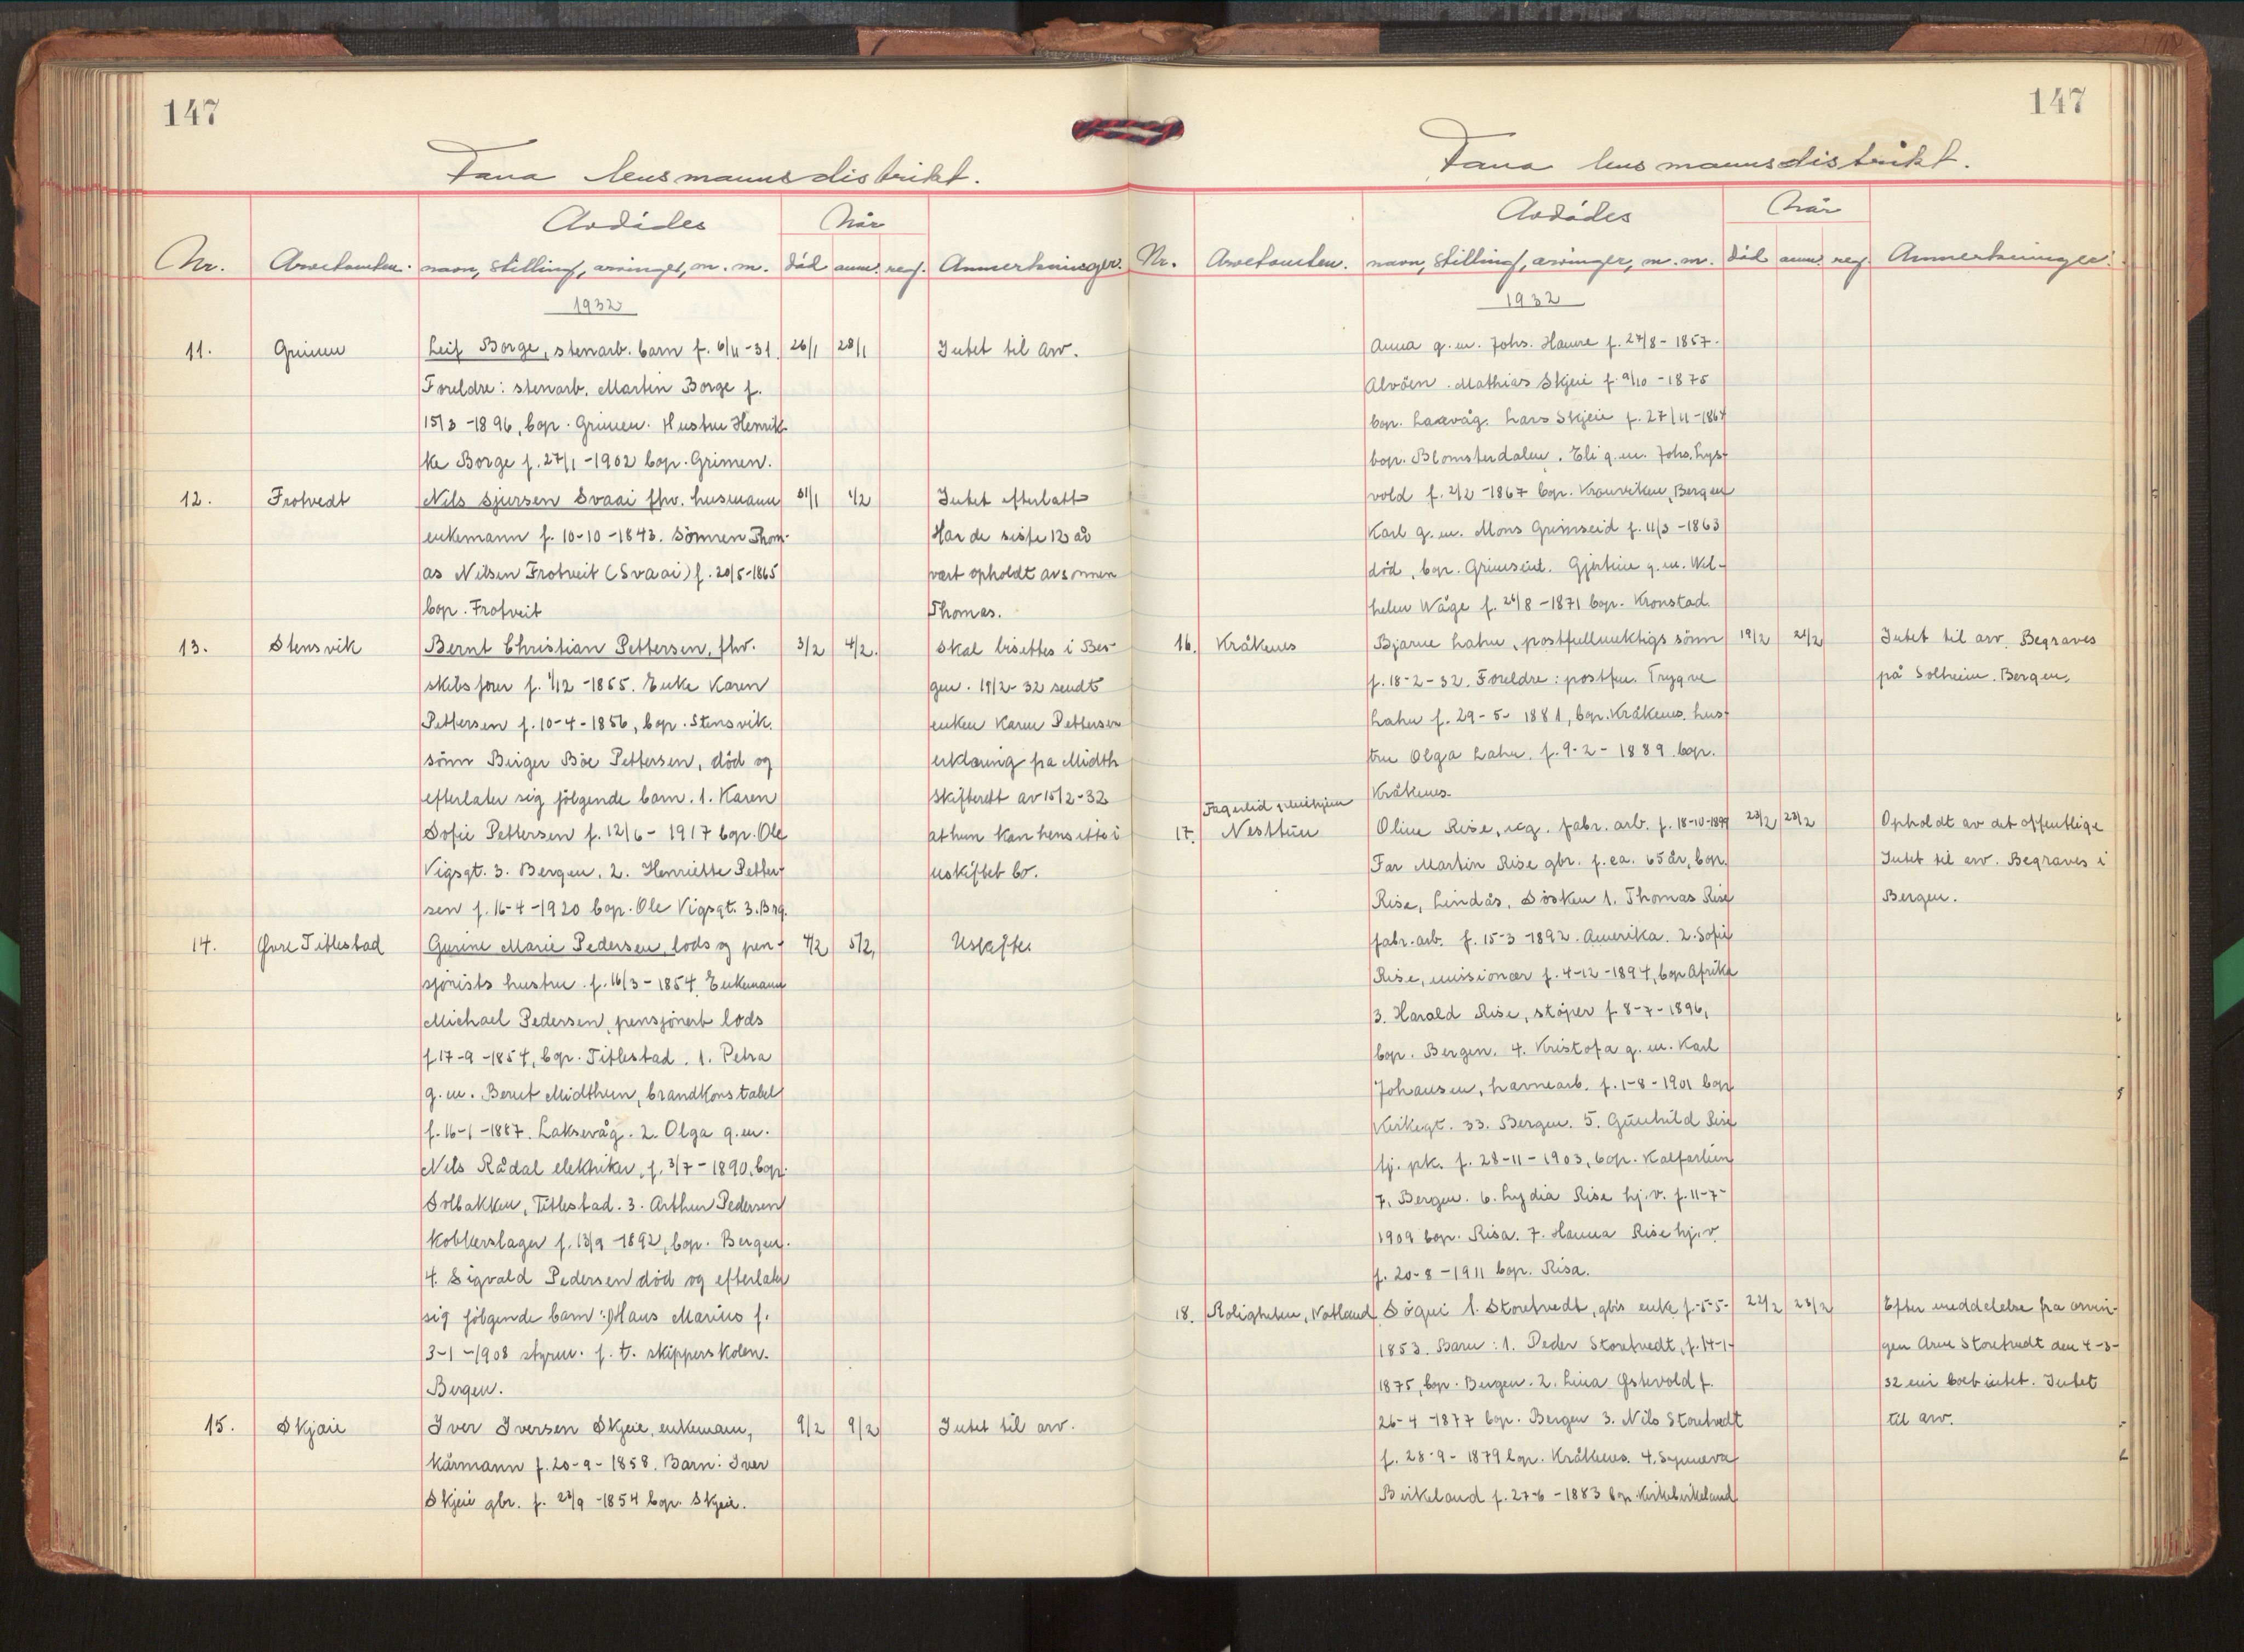 147
Fana lensmannsdistrikt.
Avdødes
Når
Nr. Arvetomten. navn, stilling, arvinger, m.m. død anm. reg. Anmerkninger.
1932
11. Grimen Leif Borge, stenarb. barn f. 6/11-31. 26/1 28/1 Intet til arv.
Foreldre: stenarb. Martin Borge f.
15/3 -1896, bop. Grimen. Hustru Henrik-
ke Borge f. 27/1 -1902 bop. Grimen.
12. Frotvedt Nils Sjursen Svaai fhv. husmann 31/1 1/2 Intet efterlatt
enkemann f. 10-10-1843. Sönnen Thom- Har de siste 12 år
as Nilsen Frotveit (Svaai) f. 20/5-1865 vært opholdt av sönnen
bop. Frotveit Thomas.
13. Stensvik Bernt Christian Pettersen, fhv. 3/2 4/2. Skal bisettes i Ber-
skibsförer f. 1/12 -1855. Enke Karen gen. 19/2-32 sendt
Pettersen f. 10-4-1856, bop. Stensvik. enken Karen Pettersen
sönn Birger Böe Pettersen, död og erklæring fra Midth
efterlater sig fölgende barn. 1. Karen Skifterett av 15/2-32
Sofie Pettersen f. 12/6 - 1917 bop. Ole at hun kan hensitte i
Vigsgt. 3. Bergen. 2. Henriette Petter- uskiftet bo.
sen f. 16-4-1920 bop. Ole Vigsgt. 3. Brg.
14. Øvre Titlestad Gurine Marie Pedersen, lods og pen- 4/2 5/2, Uskifte.
sjonists hustru. f. 16/3 - 1854. Enkemann
Michael Pedersen, pensjonert lods
f. 17-9-1854, bop. Titlestad. 1. Petra
g.m. Bernt Midthun, brandkonstabel
f. 16-1-1887. Laksevåg. 2. Olga g.m.
Nils Rådal elektriker, f. 3/7 - 1890. bop.
Solbakken, Titlestad. 3. Arthur Pedersen
Kobberslager f. 13/9 -1892, bop. Bergen.
4. Sigvald Pedersen död og efterlater
sig fölgende barn: Hans Marius f.
3-1-1908 styrm. f. t. skipperskolen.
Bergen.
15. Skjæie Iver Iversen Skjeie, enkemann, 9/2 9/2 Intet til arv.
kårmann f. 20-9-1858. Barn: Iver
Skjeie gbr. f. 23/9 -1854 bop. Skjeie.
147
Fana lensmannsdistrikt.
Avdødes
Når
Nr. Arvetomten. navn, stilling, arvinger, m.m. død anm. reg. Anmerkninger.
1932
Anna g.m. Johs. Haunre f. 27/8 - 1857.
Alvöen. Mathias Skjeie f. 9/10 - 1875
bop. Laxevåg. Lars Skjeie f. 27/11-1864
bop. Blomsterdalen. Eli g.m. Johs. Lyst-
vold f. 2/2 -1867 bop. Kronviken, Bergen
Kari g.m. Mons Grimseid f. 11/3 -1863
död, bop. Grimseid. Gjertine g.m. Wil-
helm Wåge f. 26/8 -1871 bop. Kronstad.
16. Kråkenes Bjarne Hahn, postfullmektigs sönn 19/2 21/2 Intet til arv. Begraves
f. 18-2-32. Foreldre: postfm. Trygve på Solheim. Bergen.
Hahn f. 29-5-1881, bop. Kråkenes. hus-
tru Olga Hahn. f. 9-2-1889. bop.
Kråkenes.
Fagerlid pleiehjem
17. Nesttun Oline Rise, ug. fabr. arb. f. 18-10-1899 23/2 23/2 Opholdt av det offentlige
Far Martin Rise gbr. f. ca. 65 år, bop. Intet til arv. Begraves i
Rise, Lindås. Sösken 1. Thomas Rise Bergen.
fabr. arb. f. 15-3-1892. Amerika. 2. Sofie
Rise, misionær f. 4-12-1894, bop Afrika
3. Harald Rise, stöper f. 8-7-1896,
bop. Bergen. 4. Kristofa g.m. Karl
Johansen, havnearb. f. 1-8-1901 bop
Kirkegt. 33. Bergen. 5. Gunhild Rise
tj. pk. f. 28-11-1903, bop. Kalfarlien
7, Bergen. 6. Lydia Rise hj.v. f. 11-7-
1909 bop. Risa. 7. Hanna Rise hj.v.
f. 20-8-1911 bop. Risa.
18. Roligheten, Natland Sögni I. Storetvedt, gbr's enke f. 5-5- 22/2 23/2 Efter meddelelse fra arvin-
1853. Barn: 1. Peder Storetvedt, f. 14-1- gen Arne Storetvedt den 4-3-
1875, bop. Bergen. 2. Lina Østevold f. 32 eier boet intet. Intet
26-4-1877 bop. Bergen 3. Nils Storetvedt til arv.
f. 28-9-1879 bop. Kråkenes. 4. Synneva
Birkeland f. 27-6-1883 bop. Kirkebirkeland